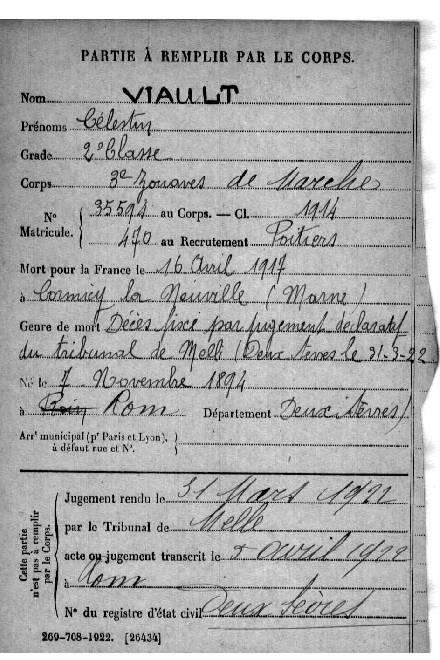 PARTIE À REMPLIR PAR LE CORPS.
Nom VIAULT
Prénoms Célestin
Grade 2e Classe
Corps 3e Zouaves de Marche
N° 35594 au Corps. — Cl. 1914
Matricule. 470 au Recrutement Poitiers
Mort pour la France le 16 Avril 1917
à Cormicy la Neuville (Marne)
Genre de mort Décès fixé par jugement déclaratif
du tribunal de Melle (Deux Sèvres le 31-3-22
Né le 7 Novembre 1894
à Rom Département Deux Sèvres)
Arrt municipal (pr Paris et Lyon),
à défaut rue et N°.
Cette partie
n'est pas à remplir
par le Corps.
Jugement rendu le 31 Mars 1922
par le Tribunal de Melle
acte ou jugement transcrit le 5 avril 1922
à Rom
N° du registre d'état civil Deux Sèvres
269-708-1922. [26434]